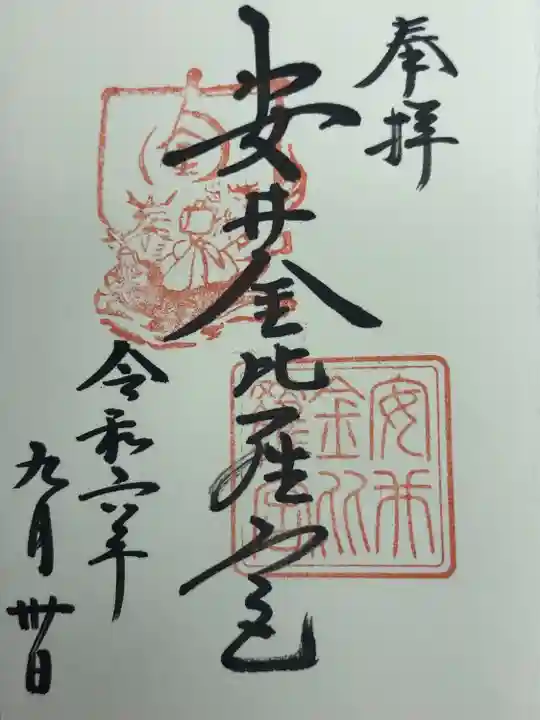 奉拝
安井金比羅宮
令和六年
九月卅日
安井
金比
羅宮
金